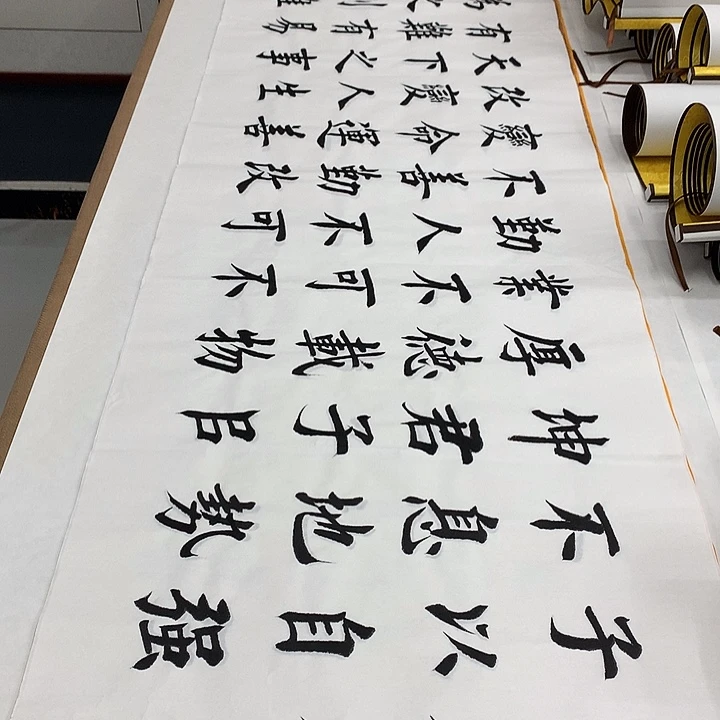 子以自强
不息地勢
坤君子曰
厚德載物
業不可不
勤人不可
不善勤改
變命運善
改變人生
天下之事
有難有易